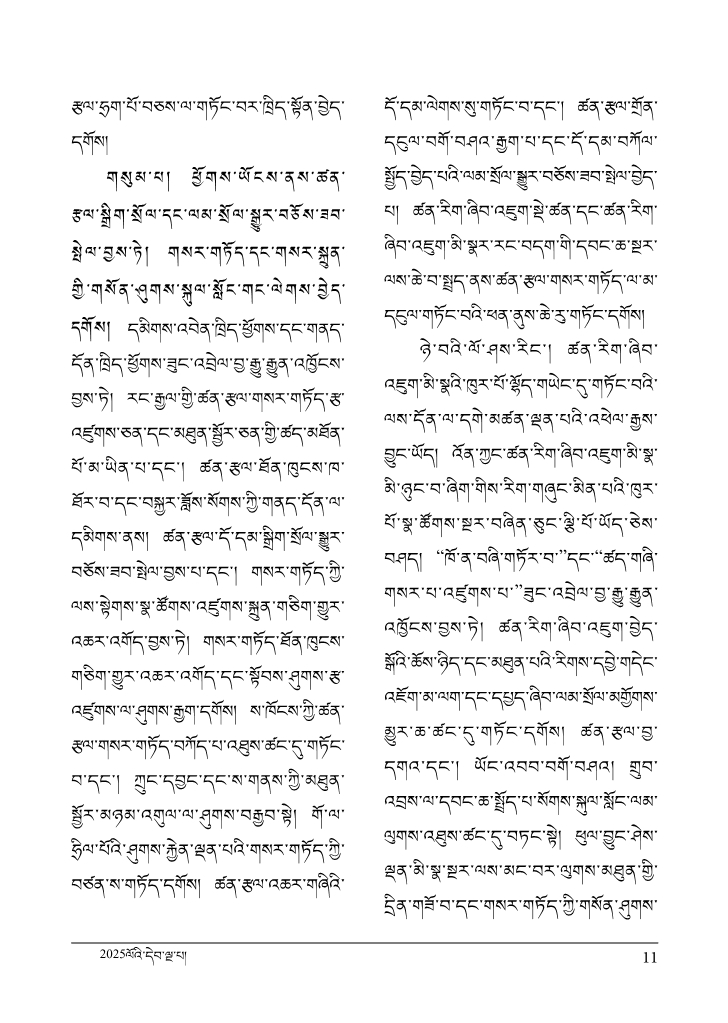 རྩལ་ཧྲག་པོ་བཅས་ལ་གཏོང་བར་ཁྲིད་སྟོན་བྱེད་
དགོས།
གསུམ་པ། ཕྱོགས་ཡོངས་ནས་ཚན་
རྩལ་སྒྲིག་སྲོལ་དང་ལམ་སྲོལ་སྒྱུར་བཅོས་ཟབ་
སྤེལ་བྱས་ཏེ། གསར་གཏོད་དང་གསར་སྐྲུན་
གྱི་གསོན་ཤུགས་སྐུལ་སློང་གང་ལེགས་བྱེད་
དགོས། དམིགས་འབེན་ཁྲིད་ཕྱོགས་དང་གནད་
དོན་ཁྲིད་ཕྱོགས་ཟུང་འབྲེལ་བྱ་རྒྱུ་རྒྱུན་འཁྱོངས་
བྱས་ཏེ། རང་རྒྱལ་གྱི་ཚན་རྩལ་གསར་གཏོད་རྩ་
འཛུགས་ཅན་དང་མཐུན་སྦྱོར་ཅན་གྱི་ཚད་མཐོན་
པོ་མ་ཡིན་པ་དང་། ཚན་རྩལ་ཐོན་ཁུངས་ཁ་
ཐོར་བ་དང་བསྐྱར་ཟློས་སོགས་ཀྱི་གནད་དོན་ལ་
དམིགས་ནས། ཚན་རྩལ་དོ་དམ་སྒྲིག་སྲོལ་སྒྱུར་
བཅོས་ཟབ་སྤེལ་བྱས་པ་དང་། གསར་གཏོད་ཀྱི་
ལས་སྟེགས་སྣ་ཚོགས་འཛུགས་སྐྲུན་གཅིག་གྱུར་
འཆར་འགོད་བྱས་ཏེ། གསར་གཏོད་ཐོན་ཁུངས་
གཅིག་གྱུར་འཆར་འགོད་དང་སྟོབས་ཤུགས་རྩ་
འཛུགས་ལ་ཤུགས་རྒྱག་དགོས། ས་ཁོངས་ཀྱི་ཚན་
རྩལ་གསར་གཏོད་བཀོད་པ་འཐུས་ཚང་དུ་གཏོང་
བ་དང་། ཀྲུང་དབྱང་དང་ས་གནས་ཀྱི་མཐུན་
སྦྱོར་མཉམ་འགུལ་ལ་ཤུགས་བརྒྱབ་སྟེ། གོ་ལ་
ཧྲིལ་པོའི་ཤུགས་རྐྱེན་ལྡན་པའི་གསར་གཏོད་ཀྱི་
བཙན་ས་གཏོད་དགོས། ཚན་རྩལ་འཆར་གཞིའི་
དོ་དམ་ལེགས་སུ་གཏོང་བ་དང་། ཚན་རྩལ་གྲོན་
དངུལ་བགོ་བཤའ་རྒྱག་པ་དང་དོ་དམ་བཀོལ་
སྤྱོད་བྱེད་པའི་ལམ་སྲོལ་སྒྱུར་བཅོས་ཟབ་སྤེལ་བྱེད་
པ། ཚན་རིག་ཞིབ་འཇུག་སྡེ་ཚན་དང་ཚན་རིག་
ཞིབ་འཇུག་མི་སྣར་རང་བདག་གི་དབང་ཆ་སྔར་
ལས་ཆེ་བ་སྤྲད་ནས་ཚན་རྩལ་གསར་གཏོད་ལ་མ་
དངུལ་གཏོང་བའི་ཕན་ནུས་ཆེ་རུ་གཏོང་དགོས།
ཉེ་བའི་ལོ་ཤས་རིང་། ཚན་རིག་ཞིབ་
འཇུག་མི་སྣའི་ཁུར་པོ་ལྷོད་གཡེང་དུ་གཏོང་བའི་
ལས་དོན་ལ་དགེ་མཚན་ལྡན་པའི་འཕེལ་རྒྱས་
བྱུང་ཡོད། འོན་ཀྱང་ཚན་རིག་ཞིབ་འཇུག་མི་སྣ་
མི་ཉུང་བ་ཞིག་གིས་རིག་གཞུང་མིན་པའི་ཁུར་
པོ་སྣ་ཚོགས་སྔར་བཞིན་ཅུང་ལྕི་པོ་ཡོད་ཅེས་
བཤད། “ཁོ་ན་བཞི་གཏོར་བ་”དང་“ཚད་གཞི་
གསར་པ་འཛུགས་པ་”ཟུང་འབྲེལ་བྱ་རྒྱུ་རྒྱུན་
འཁྱོངས་བྱས་ཏེ། ཚན་རིག་ཞིབ་འཇུག་བྱེད་
སྒོའི་ཆོས་ཉིད་དང་མཐུན་པའི་རིགས་དབྱེ་གདེང་
འཇོག་མ་ལག་དང་དཔྱད་ཞིབ་ལམ་སྲོལ་མགྱོགས་
མྱུར་ཆ་ཚང་དུ་གཏོང་དགོས། ཚན་རྩལ་བྱ་
དགའ་དང་། ཡོང་འབབ་བགོ་བཤའ། གྲུབ་
འབྲས་ལ་དབང་ཆ་སྤྲོད་པ་སོགས་སྐུལ་སློང་ལམ་
ལུགས་འཐུས་ཚང་དུ་བཏང་སྟེ། ཕུལ་བྱུང་ཤེས་
ལྡན་མི་སྣ་སྔར་ལས་མང་བར་ལུགས་མཐུན་གྱི་
དྲིན་གཟོ་བ་དང་གསར་གཏོད་ཀྱི་གསོན་ཤུགས་
2025ལོའི་དེབ་ལྔ་པ། 11